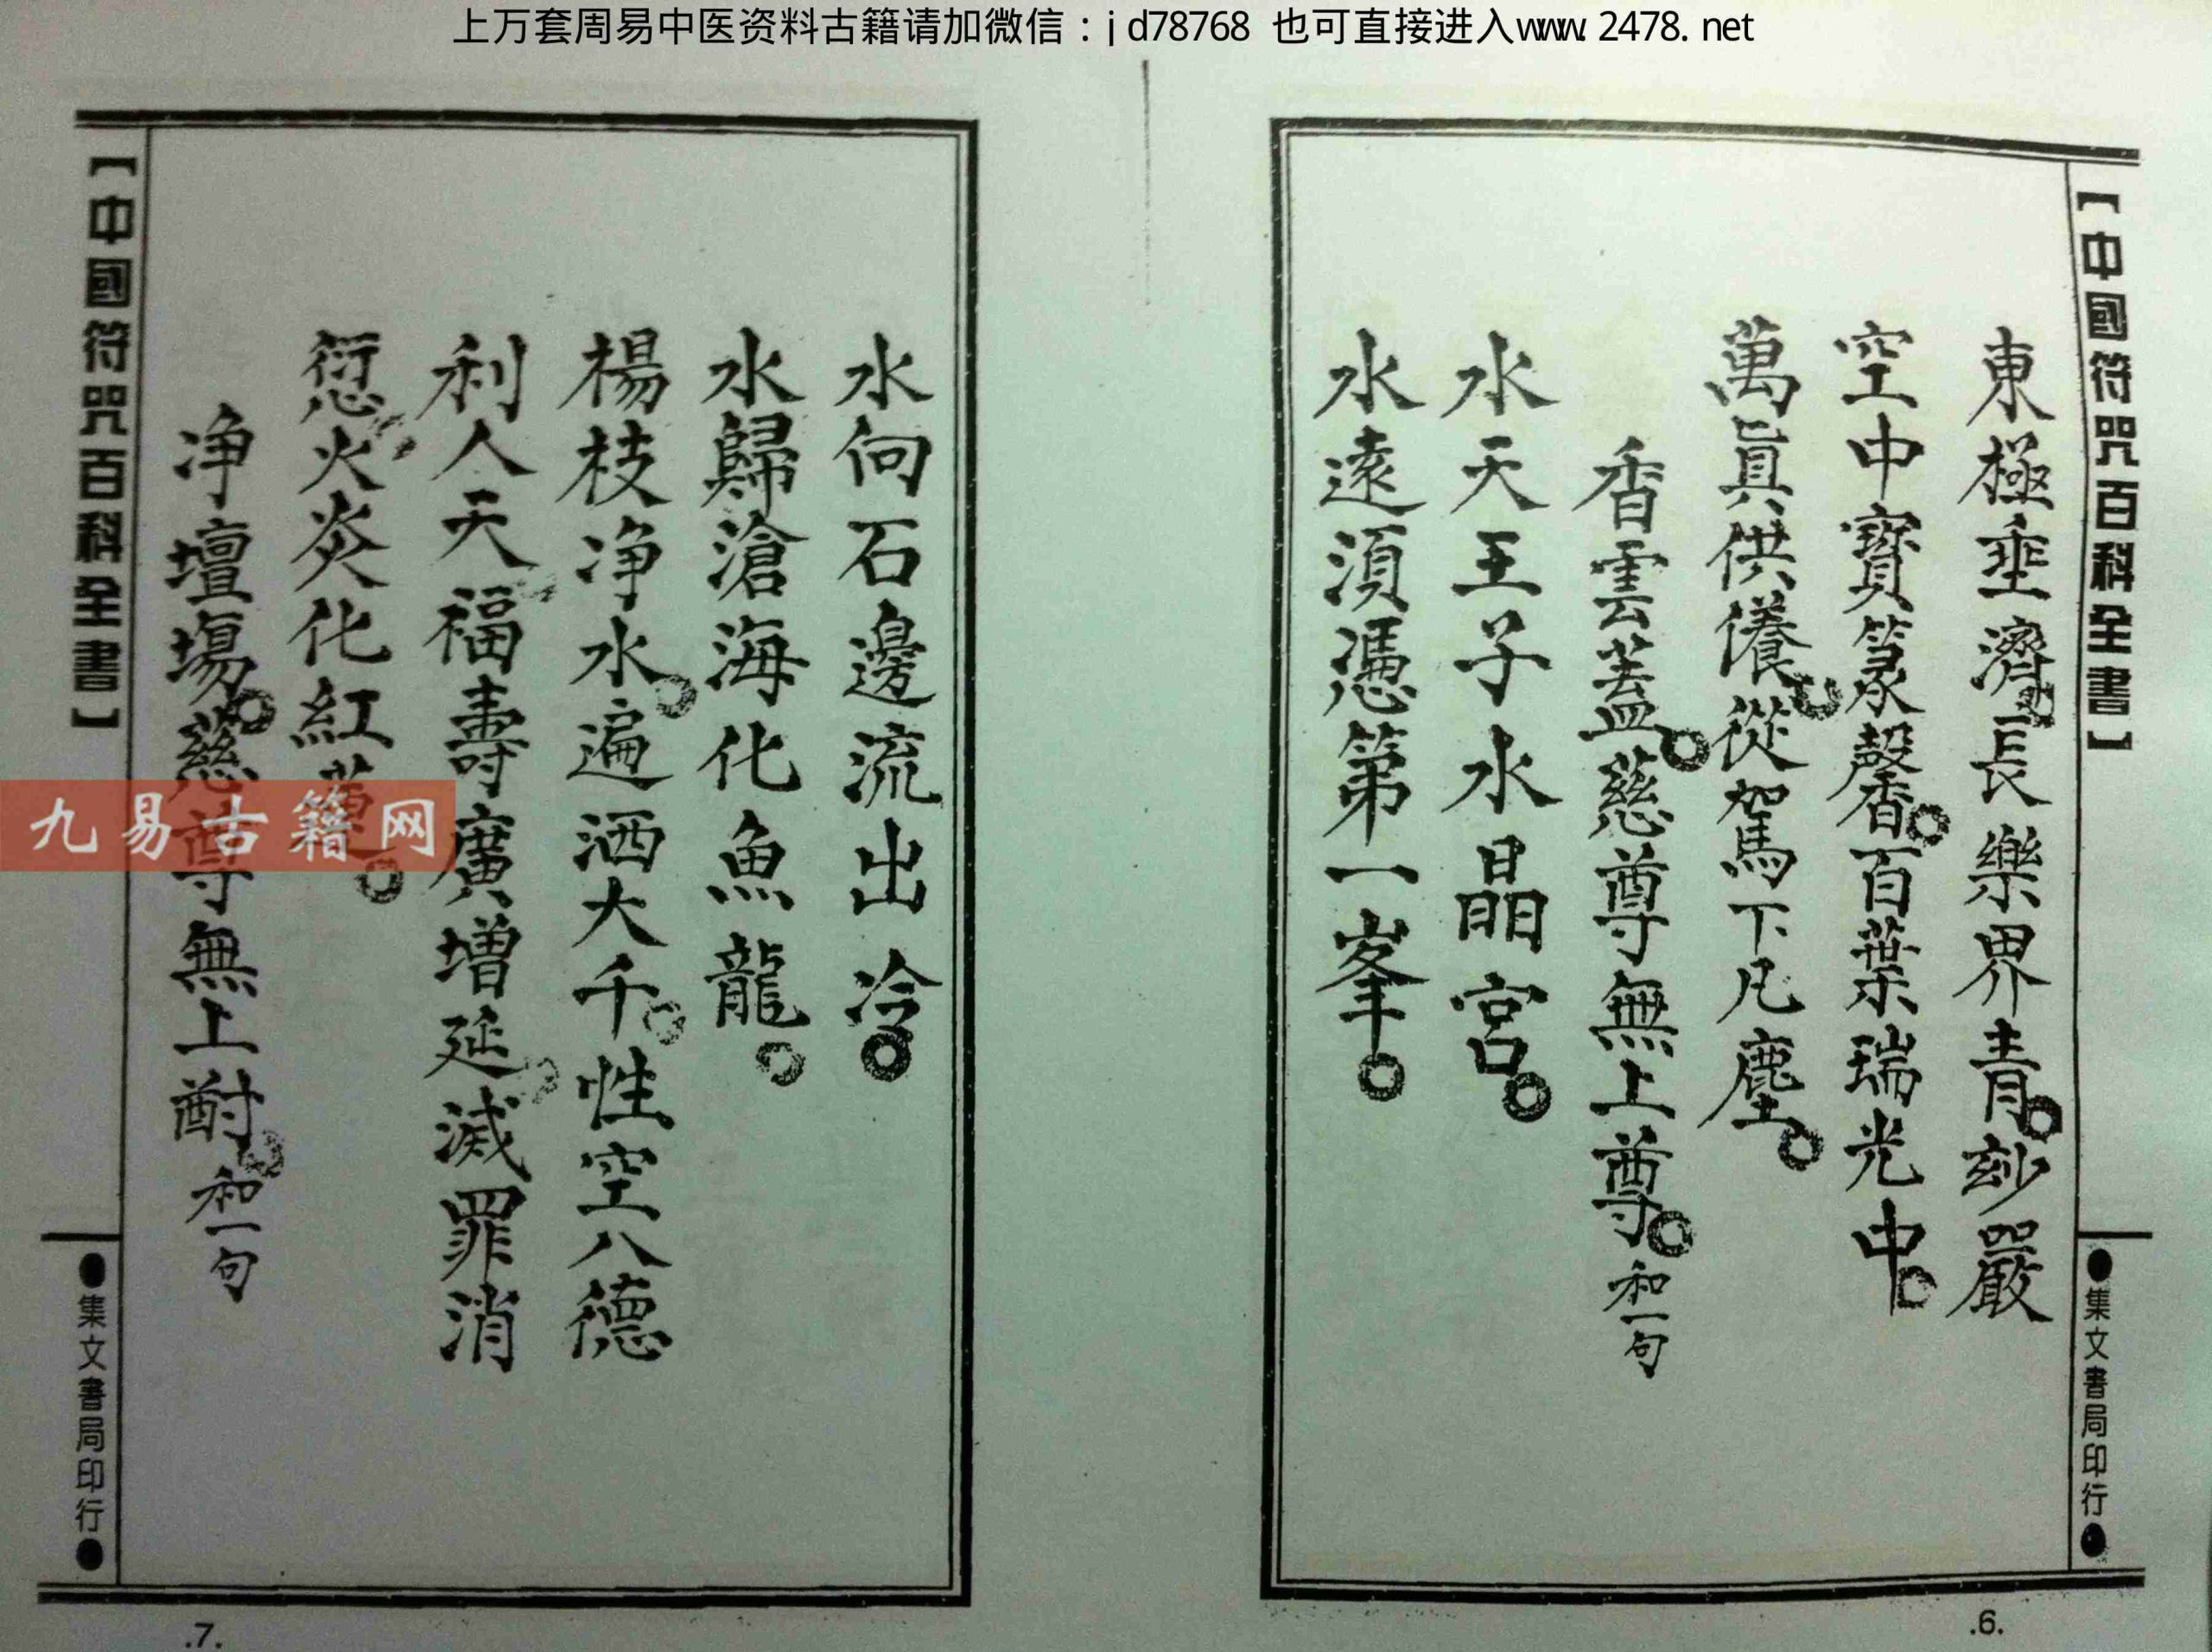 上万套周易中医资料古籍请加微信：jd78768 也可直接进入www.2478.net
【中國符咒百科全書】
●集文書局印行●
東極垂濟長樂界青玅嚴
空中寶篆馨香百葉瑞光中
萬眞供養從駕下凡塵
香雲盖慈尊無上尊和一句
水天王子水晶宮
水遠須憑第一峯
.6.
水向石邊流出冷
水歸滄海化魚龍
楊枝净水遍洒大千性空八德
利人天福壽廣增延滅罪消
愆火炎化紅蓮
净壇場慈尊無上酎和一句
【中國符咒百科全書】
●集文書局印行●
.7.
九易古籍网